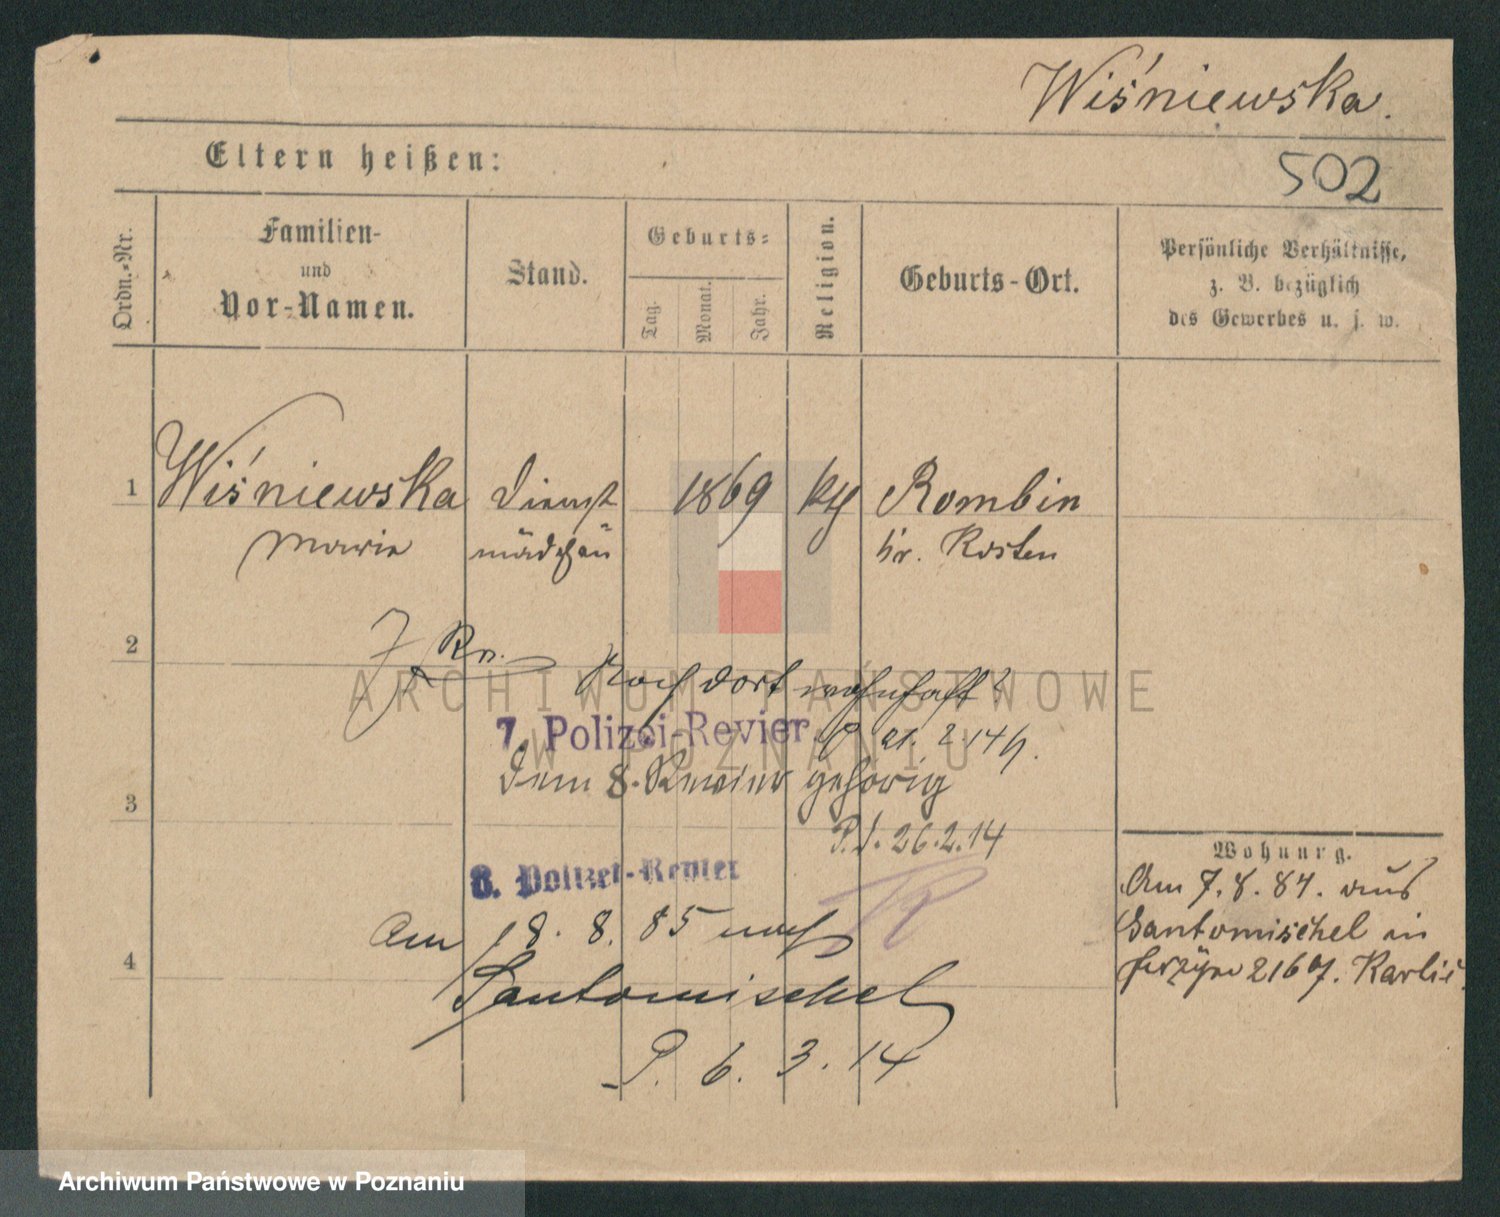 Wiśniewska.
Eltern heißen:
502
Ordn.-Nr.
Familien-
und
Vor-Namen.
Stand.
Geburts-
Tag.
Monat.
Jahr.
Religion.
Geburts-Ort.
Persönliche Verhältnisse,
z. B. bezüglich
des Gewerbes u. s. w.
1
Wiśniewska
Marie
Dienst
mädchen
1869
kth
Rombin
Kr. Kosten
2
Noch dort wohnhaft?
ARCHIWUM PAŃSTWOWE
W POZNANIU
7. Polizei-Revier
P. 21. 2. 14
Dem 8. Revier gehörig
3
26.2.14
8. Polizei-Revier
Wohnung.
Am 7. 8. 84. aus
Santomischel in
2167. Karlic
Am 18. 8. 85 nach
4
Santomischel
P. 6. 3. 14
Archiwum Państwowe w Poznaniu